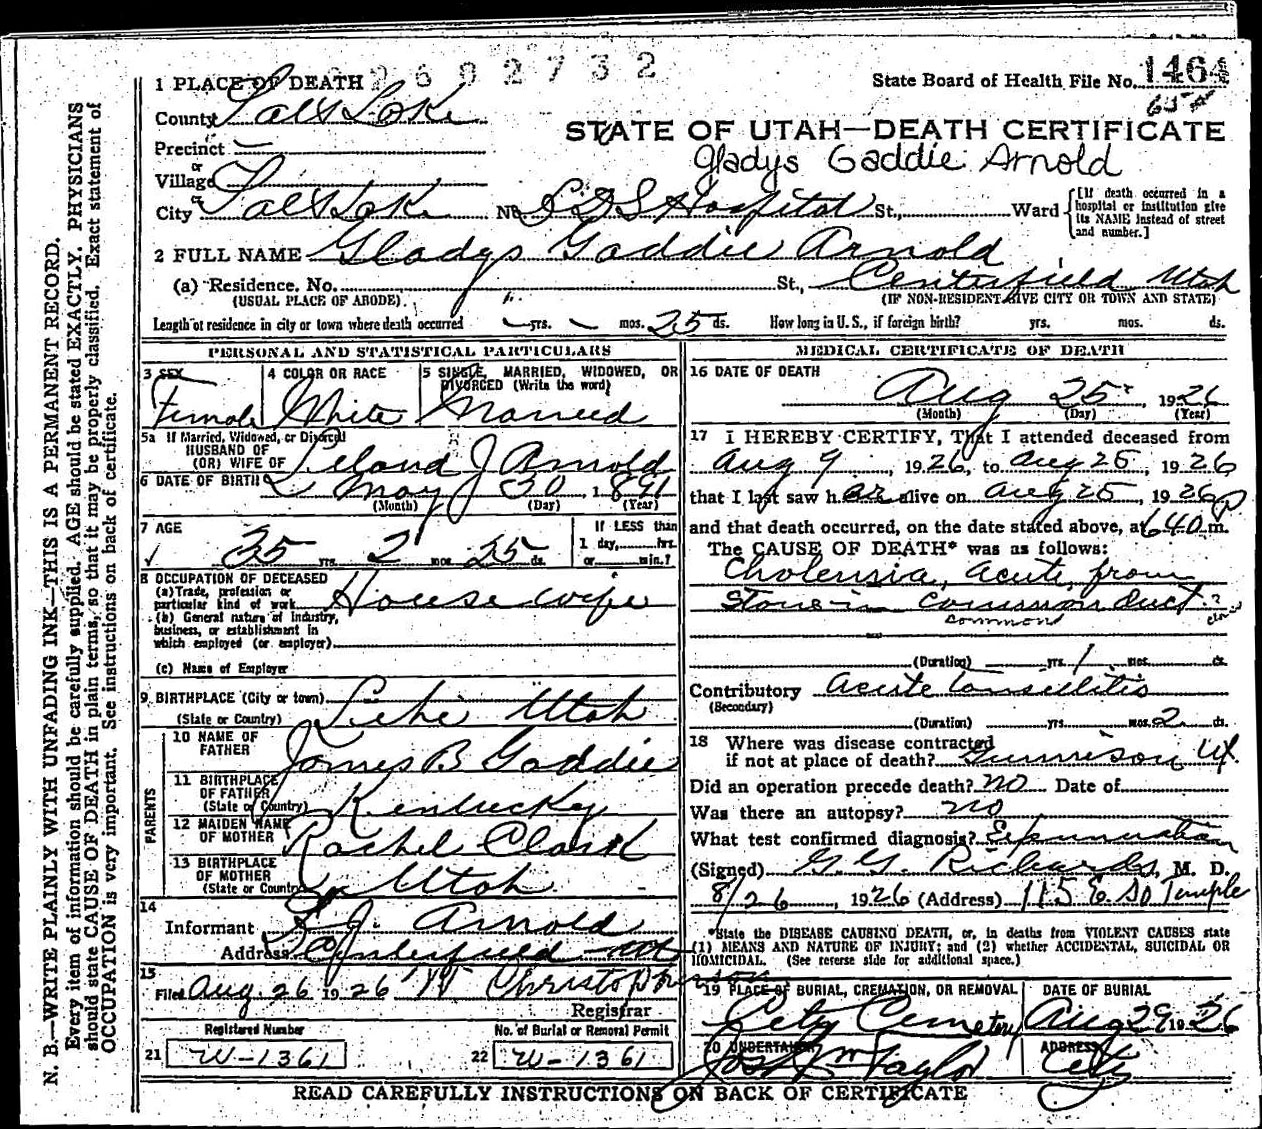 2602732
1 PLACE OF DEATH
State Board of Health File No. 1464
County Salt Lake
STATE OF UTAH—DEATH CERTIFICATE
Precinct —
Gladys Gaddie Arnold
or
Village
or
City Salt Lake No. L D S Hospital St., Ward
[If death occurred in a hospital or institution give its NAME instead of street and number.]
2 FULL NAME Gladys Gaddie Arnold
(a) Residence, No. St., Centerfield Utah
(USUAL PLACE OF ABODE) (IF NON-RESIDENT GIVE CITY OR TOWN AND STATE)
Length of residence in city or town where death occurred — yrs. — mos. 25 ds. How long in U.S., if foreign birth? yrs. mos. ds.
PERSONAL AND STATISTICAL PARTICULARS
3 SEX 4 COLOR OR RACE 5 SINGLE, MARRIED, WIDOWED, OR DIVORCED (Write the word)
Female White Married
5a If Married, Widowed, or Divorced
HUSBAND OF
(OR) WIFE OF Leland J Arnold
6 DATE OF BIRTH May 30, 1891
(Month) (Day) (Year)
7 AGE If LESS than
35 yrs. 2 mos. 25 ds. 1 day, hrs.
or min.?
8 OCCUPATION OF DECEASED
(a) Trade, profession or
particular kind of work House wife
(b) General nature of Industry,
business, or establishment in
which employed (or employer)
(c) Name of Employer
9 BIRTHPLACE (City or town) Lehi Utah
(State or Country)
PARENTS
10 NAME OF
FATHER James B Gaddie
11 BIRTHPLACE
OF FATHER
(State or Country) Kentucky
12 MAIDEN NAME
OF MOTHER Rachel Clark
13 BIRTHPLACE
OF MOTHER
(State or Country) Utah
14
Informant L. J. Arnold
Address Centerfield Ut
15
Filed Aug. 26 1926 W Christopherson
Registrar
Registered Number No. of Burial or Removal Permit
21 W-1361 22 W-1361
MEDICAL CERTIFICATE OF DEATH
16 DATE OF DEATH
Aug 25, 1926
(Month) (Day) (Year)
17 I HEREBY CERTIFY, That I attended deceased from
Aug 9, 1926, to Aug 25, 1926
that I last saw her alive on Aug 25, 1926
and that death occurred, on the date stated above, at 640 P m.
The CAUSE OF DEATH* was as follows:
Cholemia, acute, from
Stone in common duct
common
(Duration) yrs. 1 mos. ds.
Contributory acute tonsillitis
(Secondary)
(Duration) yrs. mos. 2 ds.
18 Where was disease contracted
if not at place of death? Gunnison Ut.
Did an operation precede death? no Date of
Was there an autopsy? no
What test confirmed diagnosis? Examination
(Signed) G. G. Richards, M. D.
8/26, 1926 (Address) 115 E So Temple
*State the DISEASE CAUSING DEATH, or, in deaths from VIOLENT CAUSES state
(1) MEANS AND NATURE OF INJURY; and (2) whether ACCIDENTAL, SUICIDAL OR
HOMICIDAL. (See reverse side for additional space.)
19 PLACE OF BURIAL, CREMATION, OR REMOVAL DATE OF BURIAL
City Cemetery Aug 29 1926
20 UNDERTAKER ADDRESS
Jos. Wm Taylor City
READ CAREFULLY INSTRUCTIONS ON BACK OF CERTIFICATE
N. B.—WRITE PLAINLY WITH UNFADING INK—THIS IS A PERMANENT RECORD.
Every item of information should be carefully supplied. AGE should be stated EXACTLY. PHYSICIANS
should state CAUSE OF DEATH in plain terms, so that it may be properly classified. Exact statement of
OCCUPATION is very important. See instructions on back of certificate.